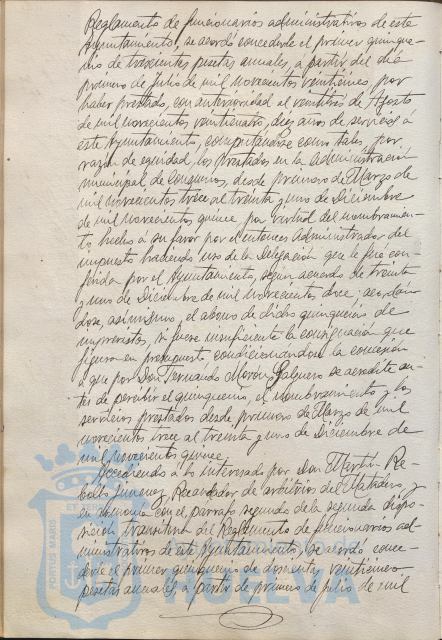 Reglamento de funcionarios administrativos de este
Ayuntamiento, se acordó concederle el primer quinque-
nio de trescientas pesetas anuales, a partir del día
primero de Julio de mil novecientos veinticinco, por
haber prestado, con anterioridad al veintitrés de Agosto
de mil novecientos veinticuatro, diez años de servicios a
este Ayuntamiento, computándose como tales, por
razón de equidad, los prestados en la Administración
municipal de Consumos, desde primero de Marzo de
mil novecientos trece al treinta y uno de Diciembre
de mil novecientos quince por virtud del nombramien-
to hecho a su favor por el entonces Administrador del
impuesto haciendo uso de la Delegación que le fué con-
ferida por el Ayuntamiento, según acuerdo de treinta
y uno de Diciembre de mil novecientos doce; acordán-
dose, asimismo, el abono de dicho quinquenio de
imprevistos, si fuese insuficiente la consignación que
figura en presupuesto condicionándose la concesión
a que por Don Fernando Morón Salguero se acredite an-
tes de percibir el quinquenio, el nombramiento y los
servicios prestados desde primero de Marzo de mil
novecientos trece al treinta y uno de Diciembre de
mil novecientos quince.
Accediendo a lo interesado por Don Martín Re-
bollo Jimenez, Recaudador de arbitrios del Matadero, y
en armonía con el párrafo segundo de la segunda dispo-
sición transitoria del Reglamento de funcionarios ad-
ministrativos de este Ayuntamiento, se acordó conce-
derle el primer quinquenio de doscientas veinticinco
pesetas anuales, a partir de primero de julio de mil
PORTUS MARIS
HUELVA